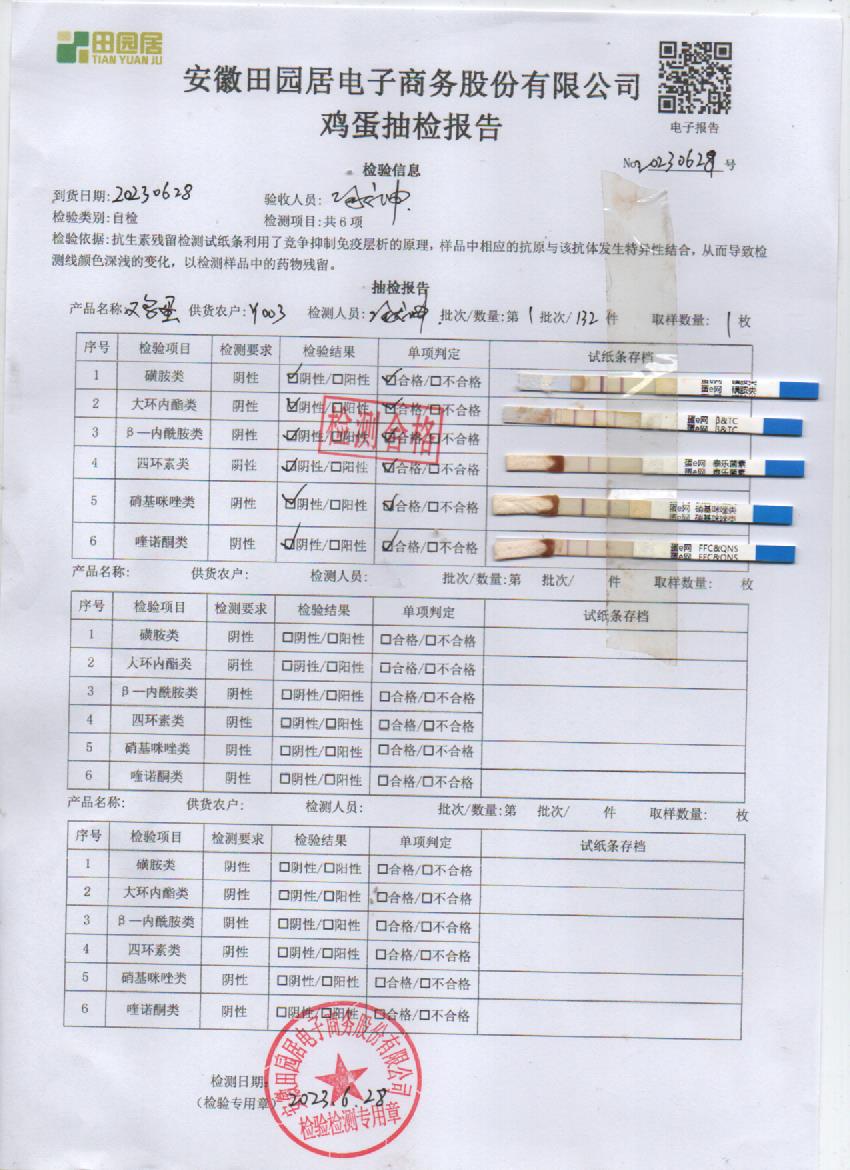 田园居
TIAN YUAN JU
安徽田园居电子商务股份有限公司
鸡蛋抽检报告
电子报告
No 20230628 号
检验信息
到货日期:20230628 验收人员:
检验类别:自检 检测项目:共6项
检验依据:抗生素残留检测试纸条利用了竞争抑制免疫层析的原理，样品中相应的抗原与该抗体发生特异性结合，从而导致检
测线颜色深浅的变化，以检测样品中的药物残留。
抽检报告
产品名称: 供货农户:Y003 检测人员: 批次/数量:第1批次/132件 取样数量:1枚
序号 检验项目 检测要求 检验结果 单项判定 试纸条存档
1 磺胺类 阴性 ☑阴性/☐阳性 ☑合格/☐不合格 蛋e网 磺胺类
2 大环内酯类 阴性 ☑阴性/☐阳性 ☑合格/☐不合格 蛋e网 β&TC
3 β—内酰胺类 阴性 ☑阴性/☐阳性 ☑合格/☐不合格
4 四环素类 阴性 ☑阴性/☐阳性 ☑合格/☐不合格 蛋e网 泰乐菌素
5 硝基咪唑类 阴性 ☑阴性/☐阳性 ☑合格/☐不合格 蛋e网 硝基咪唑类
6 喹诺酮类 阴性 ☑阴性/☐阳性 ☑合格/☐不合格 蛋e网 FFC&QNS
检测合格
产品名称: 供货农户: 检测人员: 批次/数量:第 批次/ 件 取样数量: 枚
序号 检验项目 检测要求 检验结果 单项判定 试纸条存档
1 磺胺类 阴性 ☐阴性/☐阳性 ☐合格/☐不合格
2 大环内酯类 阴性 ☐阴性/☐阳性 ☐合格/☐不合格
3 β—内酰胺类 阴性 ☐阴性/☐阳性 ☐合格/☐不合格
4 四环素类 阴性 ☐阴性/☐阳性 ☐合格/☐不合格
5 硝基咪唑类 阴性 ☐阴性/☐阳性 ☐合格/☐不合格
6 喹诺酮类 阴性 ☐阴性/☐阳性 ☐合格/☐不合格
产品名称: 供货农户: 检测人员: 批次/数量:第 批次/ 件 取样数量: 枚
序号 检验项目 检测要求 检验结果 单项判定 试纸条存档
1 磺胺类 阴性 ☐阴性/☐阳性 ☐合格/☐不合格
2 大环内酯类 阴性 ☐阴性/☐阳性 ☐合格/☐不合格
3 β—内酰胺类 阴性 ☐阴性/☐阳性 ☐合格/☐不合格
4 四环素类 阴性 ☐阴性/☐阳性 ☐合格/☐不合格
5 硝基咪唑类 阴性 ☐阴性/☐阳性 ☐合格/☐不合格
6 喹诺酮类 阴性 ☐阴性/☐阳性 ☐合格/☐不合格
安徽田园居电子商务股份有限公司
检测日期:
(检验专用章) 2023.6.28
检验检测专用章